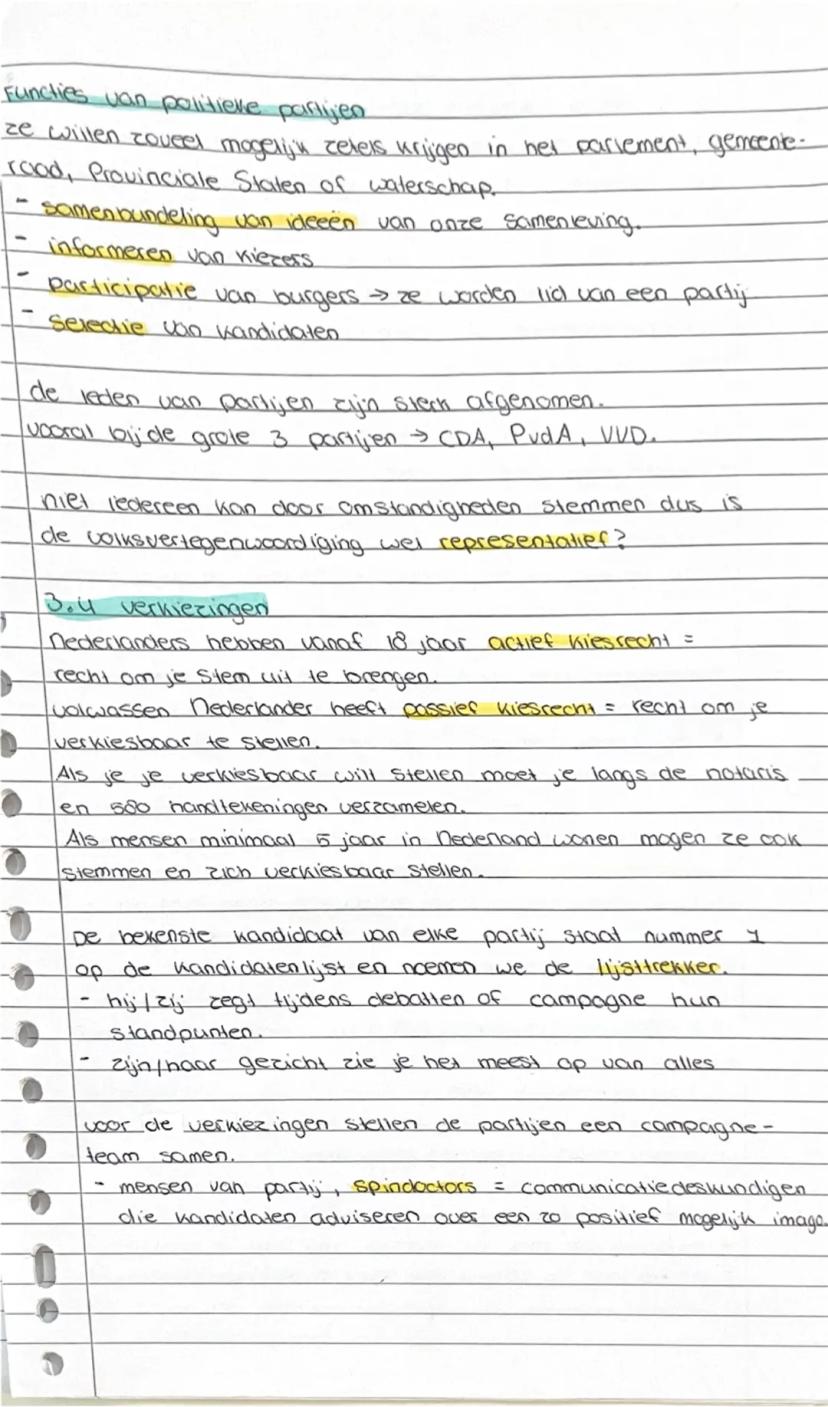 Functies van politieke partijen
ze willen zoveel mogelijk zetels krijgen in het parlement, gemeente-
raad, Provinciale Staten of waterschap.
- samenbundeling van ideeën van onze samenleving.
- informeren van kiezers
- participatie van burgers → ze worden lid van een partij
- selectie van kandidaten
de leden van partijen zijn sterk afgenomen.
vooral bij de grote 3 partijen → CDA, PvdA, VVD.
niet iedereen kan door omstandigheden stemmen dus is
de volksvertegenwoordiging wel representatief?
3.4 verkiezingen
Nederlanders hebben vanaf 18 jaar actief kiesrecht =
recht om je stem uit te brengen.
volwassen Nederlander heeft passief kiesrecht = recht om je
verkiesbaar te stellen.
Als je je verkiesbaar will stellen moet je langs de notaris
en 580 handtekeningen verzamelen.
Als mensen minimaal 5 jaar in Nederland wonen mogen ze ook
stemmen en zich verkiesbaar stellen.
De bekenste kandidaat van elke partij staat nummer 1
op de kandidatenlijst en noemen we de lijsttrekker.
- hij/zij zegt tijdens debatten of campagne hun
standpunten.
- zijn/haar gezicht zie je het meest op van alles
voor de verkiezingen stellen de partijen een campagne-
team samen.
- mensen van partij, spindoctors = communicatiedeskundigen
die kandidaten adviseren over een zo positief mogelijk imago.